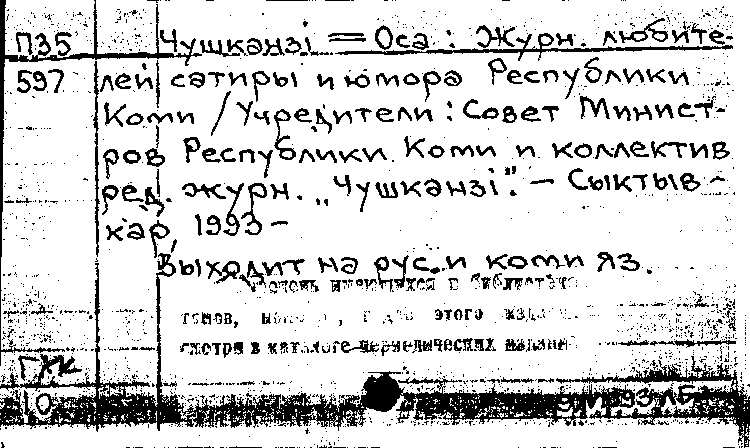 П35 Чушканзі = Оса : Журн. любите-
597 лей сатиры и юмора Республики
Коми / Учредители : Совет Минист-
ров Республики Коми и коллектив
ред. журн. „Чушканзі". – Сыктыв-
кар, 1993 –
Выходит на рус. и коми яз.
имеющихся в библиотеке
томов, этого
смотри в каталоге периодических издани
ГХК
10